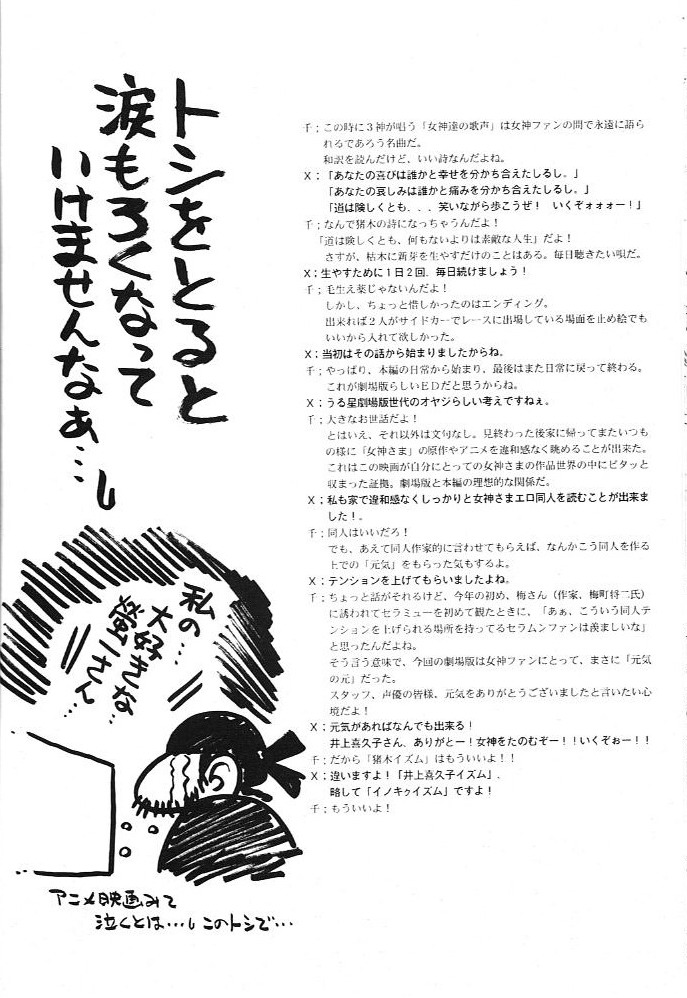 トシをとると
涙もろくなって
いけませんなぁ…
千；この時に３神が唱う「女神達の歌声」は女神ファンの間で永遠に語ら
れるであろう名曲だ。
和訳を読んだけど、いい詩なんだよね。
Ｘ；「あなたの喜びは誰かと幸せを分かち合えたしるし。」
「あなたの哀しみは誰かと痛みを分かち合えたしるし。」
「道は険しくとも．．．笑いながら歩こうぜ！　いくぞォォォー！」
千；なんで猪木の詩になっちゃうんだよ！
「道は険しくとも、何もないよりは素敵な人生」だよ！
さすが、枯木に新芽を生やすだけのことはある。毎日聴きたい唄だ。
Ｘ；生やすために１日２回．毎日続けましょう！
千；毛生え薬じゃないんだよ！
しかし、ちょっと惜しかったのはエンディング。
出来れば２人がサイドカーでレースに出場している場面を止め絵でも
いいから入れて欲しかった。
Ｘ；当初はその話から始まりましたからね。
千；やっぱり、本編の日常から始まり、最後はまた日常に戻って終わる。
これが劇場版らしいＥＤだと思うからね。
Ｘ；うる星劇場版世代のオヤジらしい考えですねぇ。
千；大きなお世話だよ！
とはいえ、それ以外は文句なし。見終わった後家に帰ってまたいつも
の様に「女神さま」の原作やアニメを違和感なく眺めることが出来た。
これはこの映画が自分にとっての女神さまの作品世界の中にピタッと
収まった証拠。劇場版と本編の理想的な関係だ。
Ｘ；私も家で違和感なくしっかりと女神さまエロ同人を読むことが出来ま
した！。
千；同人はいいだろ！
でも、あえて同人作家的に言わせてもらえば、なんかこう同人を作る
上での「元気」をもらった気もするよ。
Ｘ；テンションを上げてもらいましたよね。
千；ちょっと話がそれるけど、今年の初め、梅さん（作家、梅町将二氏）
に誘われてセラミューを初めて観たときに、「あぁ、こういう同人テ
ンションを上げられる場所を持ってるセラムンファンは羨ましいな」
と思ったんだよね。
そう言う意味で、今回の劇場版は女神ファンにとって、まさに「元気
の元」だった。
スタッフ、声優の皆様、元気をありがとうございましたと言いたい心
境だよ！
Ｘ；元気があればなんでも出来る！
井上喜久子さん、ありがとー！女神をたのむぞー！！いくぞぉー！！
千；だから「猪木イズム」はもういいよ！！
Ｘ；違いますよ！「井上喜久子イズム」．
略して「イノキｸｩイズム」ですよ！
千；もういいよ！
私の…
大好きな
螢一さん…
アニメ映画みて
泣くとは…このトシで…